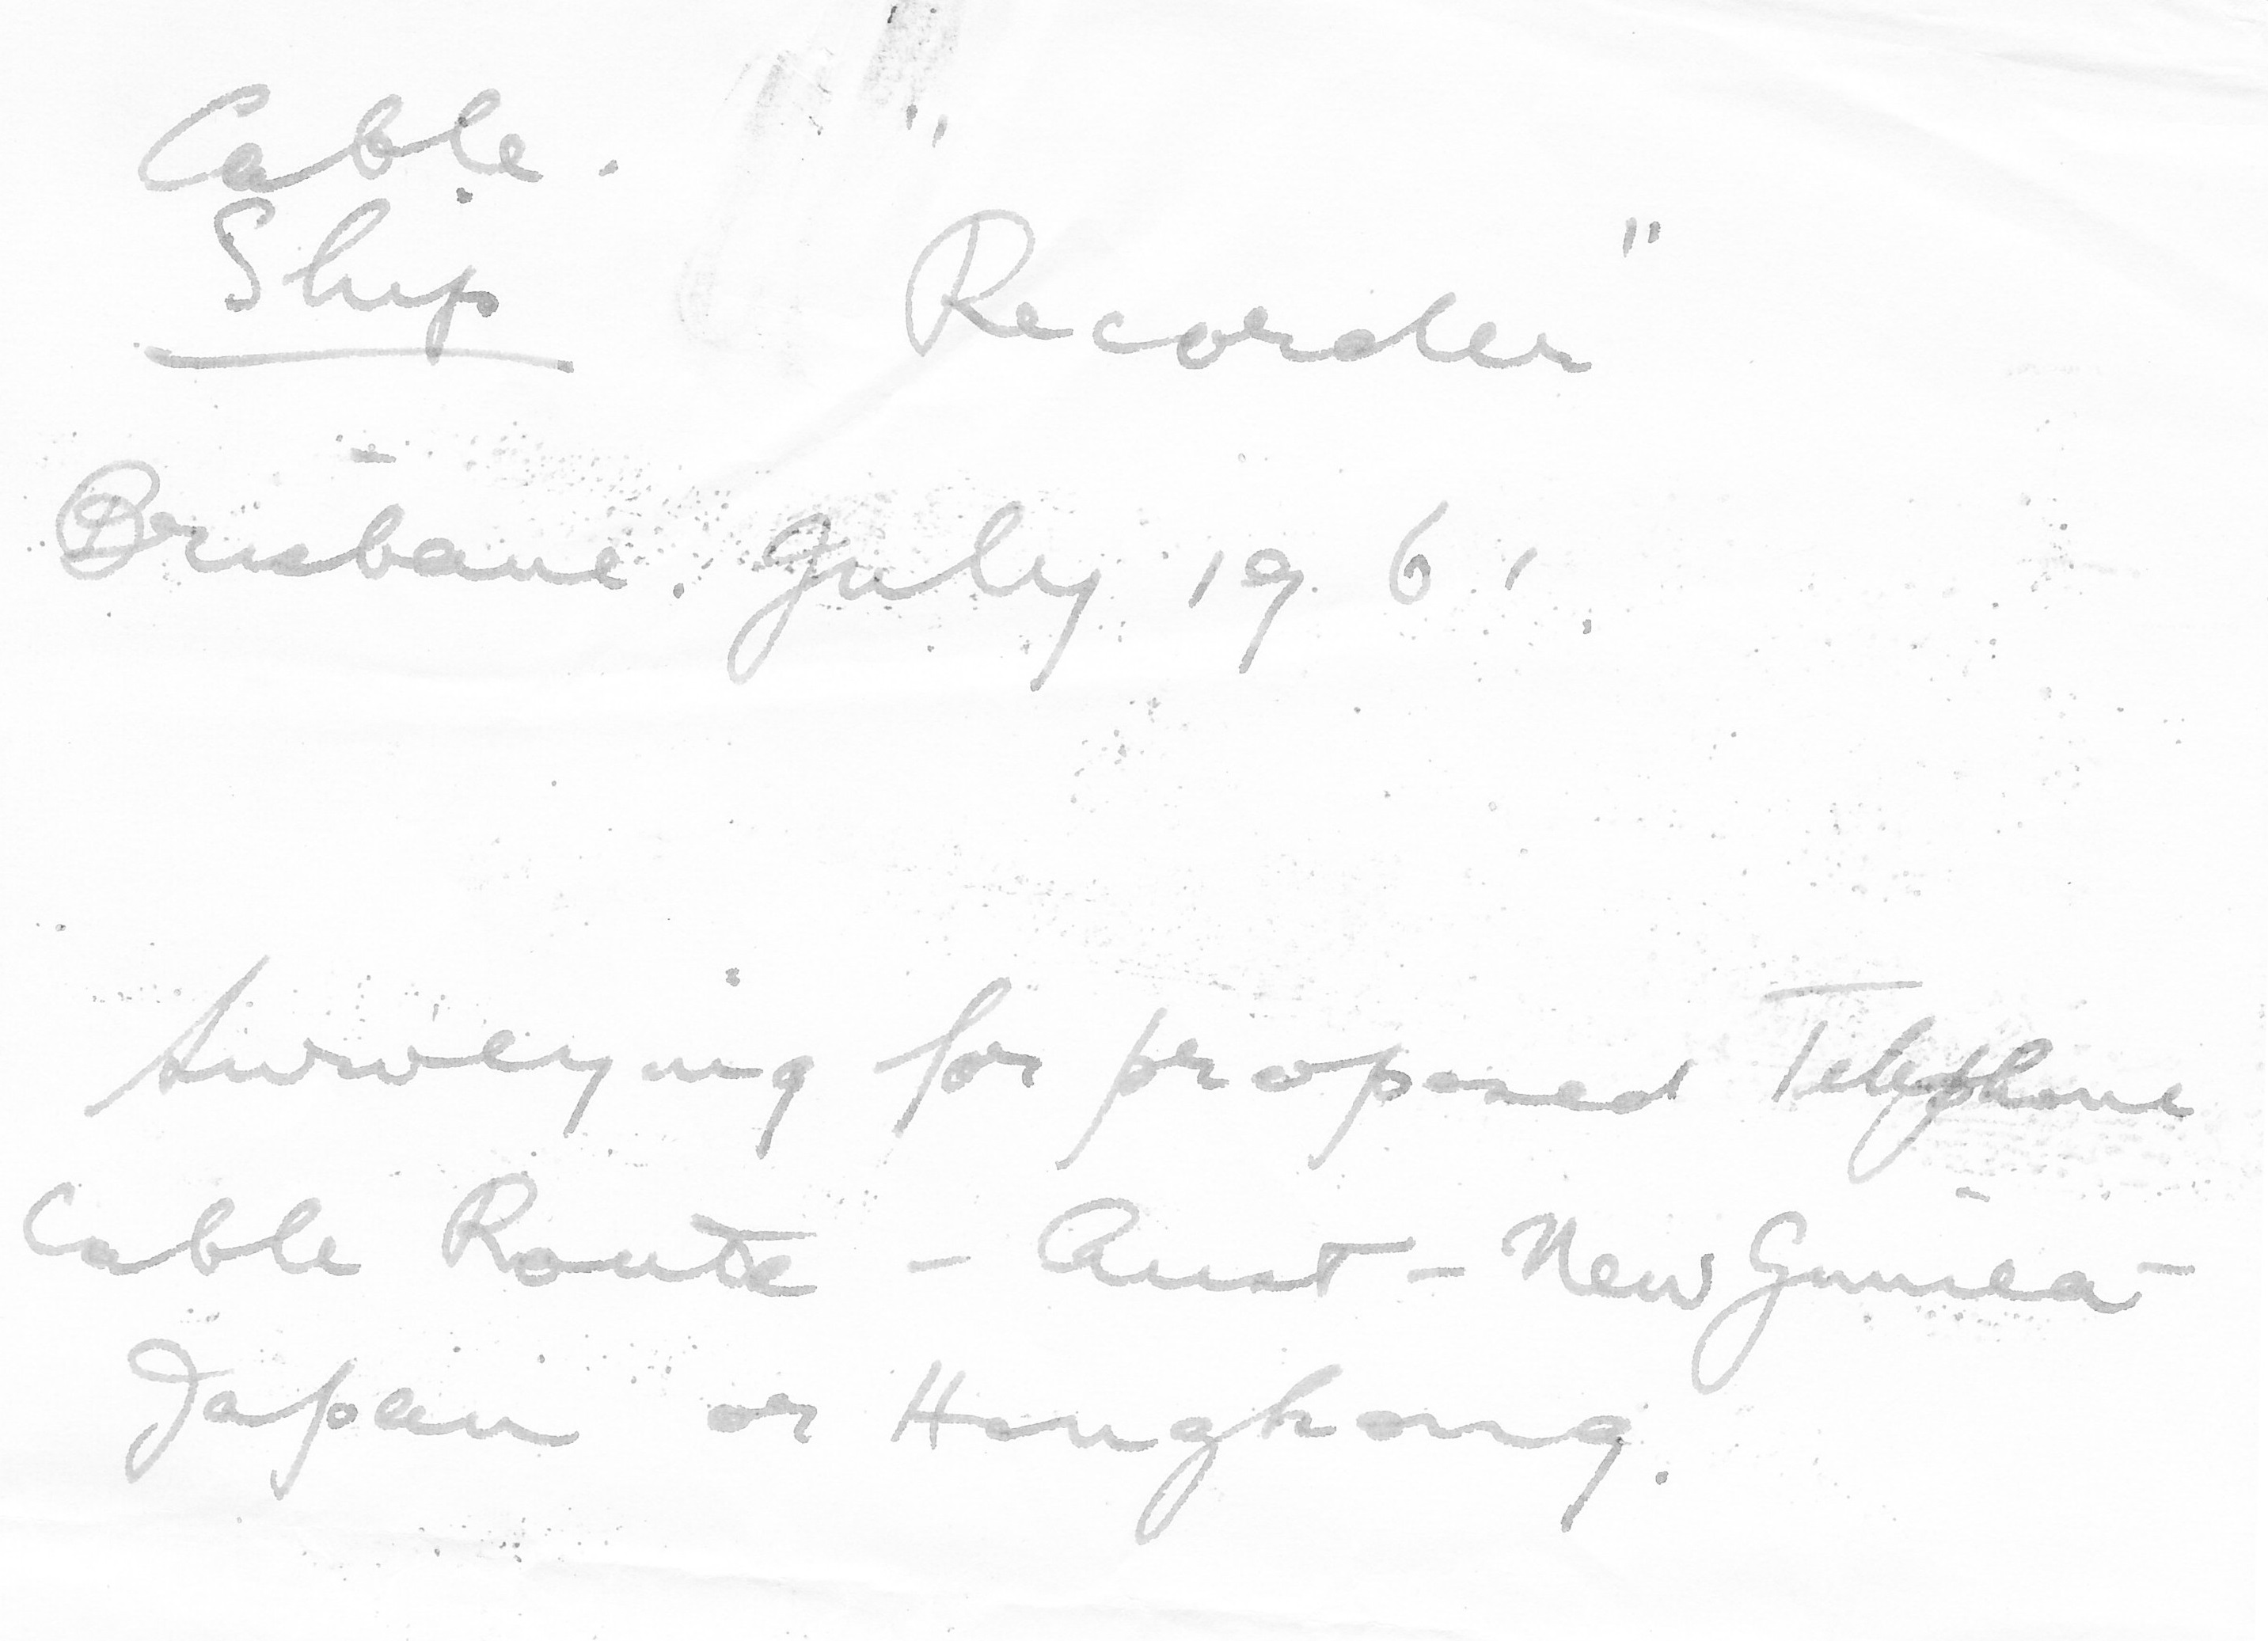 Cable.
Ship "Recorder"
Brisbane. July 1961.
Surveying for proposed Telephone
Cable Route - Aust - New Guinea -
Japan or Hongkong.